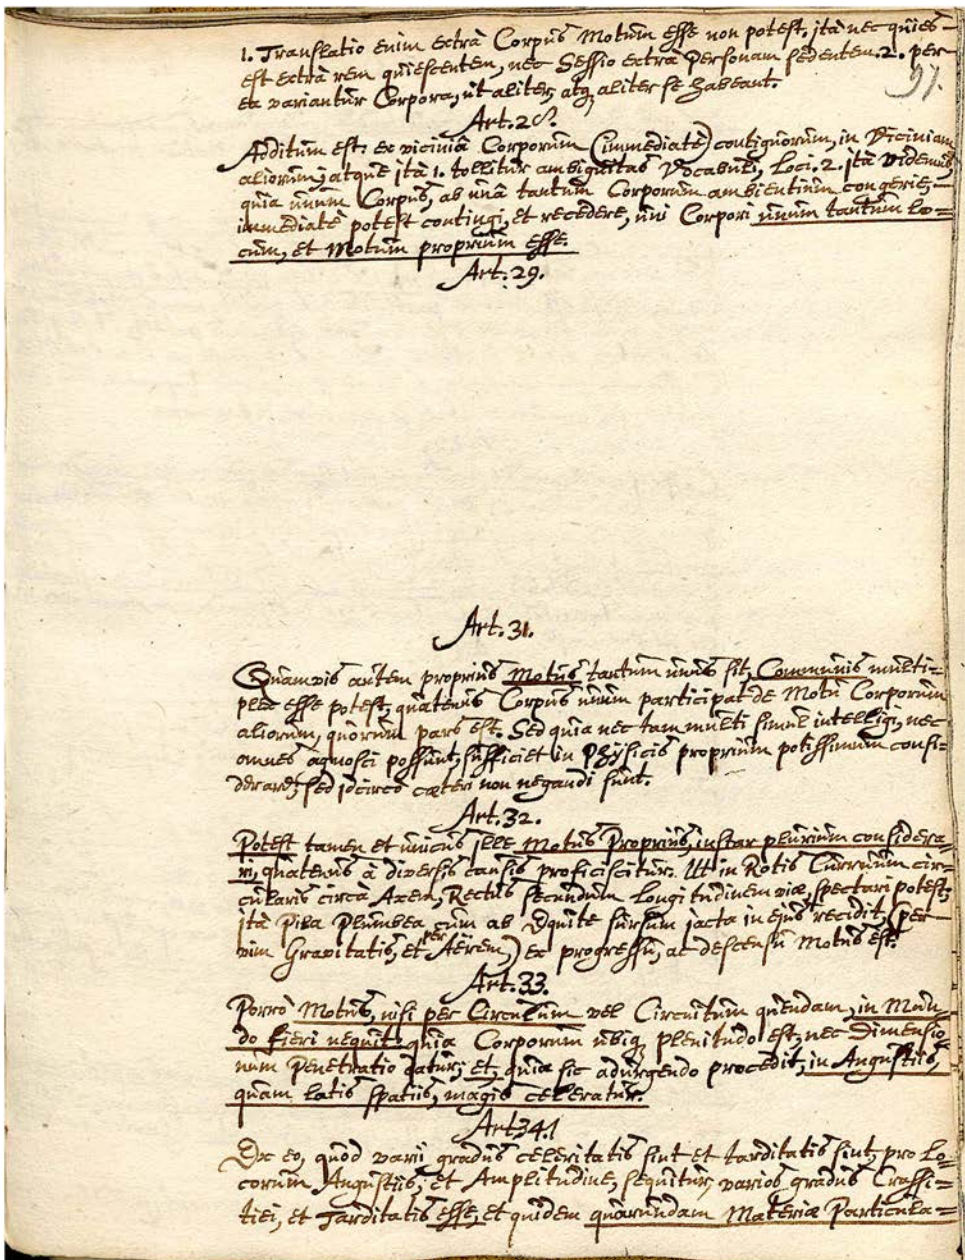 1. Translatio enim extrà Corpus Motum esse non potest, ità nec quies
est extrà rem quiescentem, nec Sessio extrà Personam sedentem. 2. per
ea variantur Corpora, ut aliter, atq; aliter se habeant.
97.
Art. 28.
Additum est: ex viciniâ Corporum (immediatè) contiguorum, in Viciniam
aliorum; atque ità 1. tollitur ambiguitas Vocabuli, Loci. 2. ità videmus,
quia unum Corpus, ab unâ tantum Corporum ambientium congerie,
immediatè potest contingi, et recedere, uni Corpori unum tantum lo=
cum, et Motum proprium esse.
Art. 29.
Art. 31.
Quamvis autem proprius Motus tantum unus sit, Communis multi=
plex esse potest, quatenus Corpus unum participat de Motu Corporum
aliorum, quorum pars est. Sed quia nec tam multi simul intelligi, nec
omnes agnosci possunt, sufficiet in Physicis proprium potissimum consi=
derare; sed idcircò cæteri non negandi sunt.
Art. 32.
Potest tamen et unicus ille Motus Proprius, instar plurium considera=
ri, quatenus à diversis causis proficiscitur. Ut in Rotis Curruum cir=
cularis circà Axem, Rectus secundum Longitudinem viæ, spectari potest;
ità Pila Plumbea cum ab Equite sursum jacta in ejus recidit, (per
vim Gravitatis, et per Aërem) ex progressu, ac descensu Motus est.
Art. 33.
Porrò Motus, nisi per Circulum vel Circuitum quendam, in Mun=
do fieri nequit: quia Corporum ubiq; plenitudo est, nec Dimensio=
num Penetratio datur; et, quia sic adurgendo procedit, in Angustiis,
quam latis spatiis, magis celeratur.
Art. 34.
Ex eo, quòd varii gradus celeritatis sint et tarditatis sint, pro Lo=
corum Angustiis, et Amplitudine, sequitur, varios gradus Crassi=
tiei, et Tarditatis esse, et quidem quarundam Materiæ Particula=